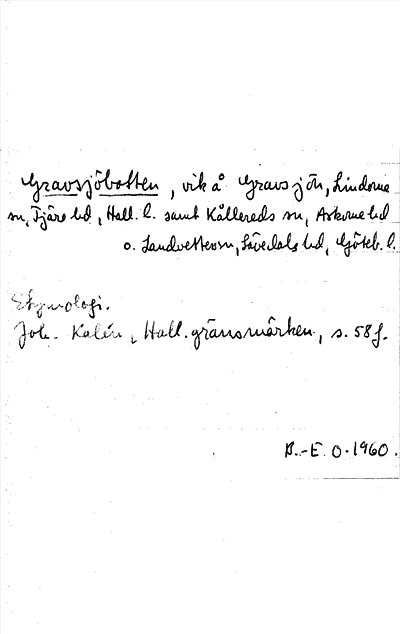 Gravsjöbotten, vik å Gravsjön, Lindome
sn, Fjäre hd, Hall. l. samt Kållereds sn, Askims hd
o. Landvettersn, Sävedals hd, Göteb. l.
Etymologi.
Joh. Kalén, Hall. gränsmärken, s. 58 f.
B.-E. O. 1960.